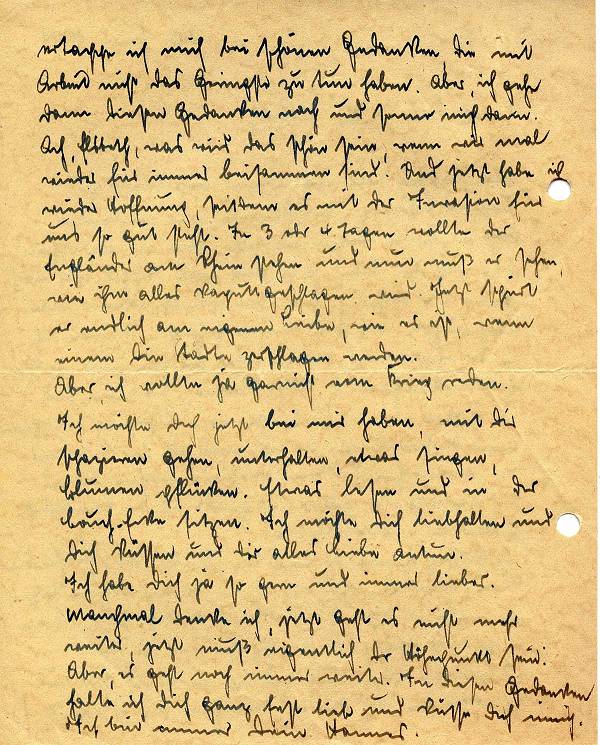 ertappe ich mich bei schönen Gedanken, die mit
Arbeit nicht das Geringste zu tun haben. Aber, ich gehe
dann diesen Gedanken nach und sonne mich darin.
Ach, Elsbeth, was wird das schön sein, wenn wir mal
wieder für immer beisammen sind. Und jetzt habe ich
wieder Hoffnung, seitdem es mit der Invasion für
uns so gut steht. In 3 oder 4 Tagen wollte der
Engländer am Rhein stehen und nun muß er sehen,
wie ihm alles kaputtgeschlagen wird. Jetzt spürt
er endlich am eigenen Leibe, wie es ist, wenn
einem die Städte zerschlagen werden.
Aber, ich wollte ja garnicht vom Krieg reden.
Ich möchte dich jetzt bei mir haben, mit dir
spazieren gehen, unterhalten, etwas singen,
Blumen pflücken. Etwas lesen und in der
Couch-Ecke sitzen. Ich möchte dich liebhalten und
dich küssen und dir alles Liebe antun.
Ich habe dich ja so gern und immer lieber.
Manchmal denke ich, jetzt geht es nicht mehr
weiter, jetzt muß eigentlich der Höhepunkt sein.
Aber, es geht noch immer weiter. In diesen Gedanken
halte ich dich ganz fest lieb und küsse dich innig.
Ich bin immer dein Hannes.